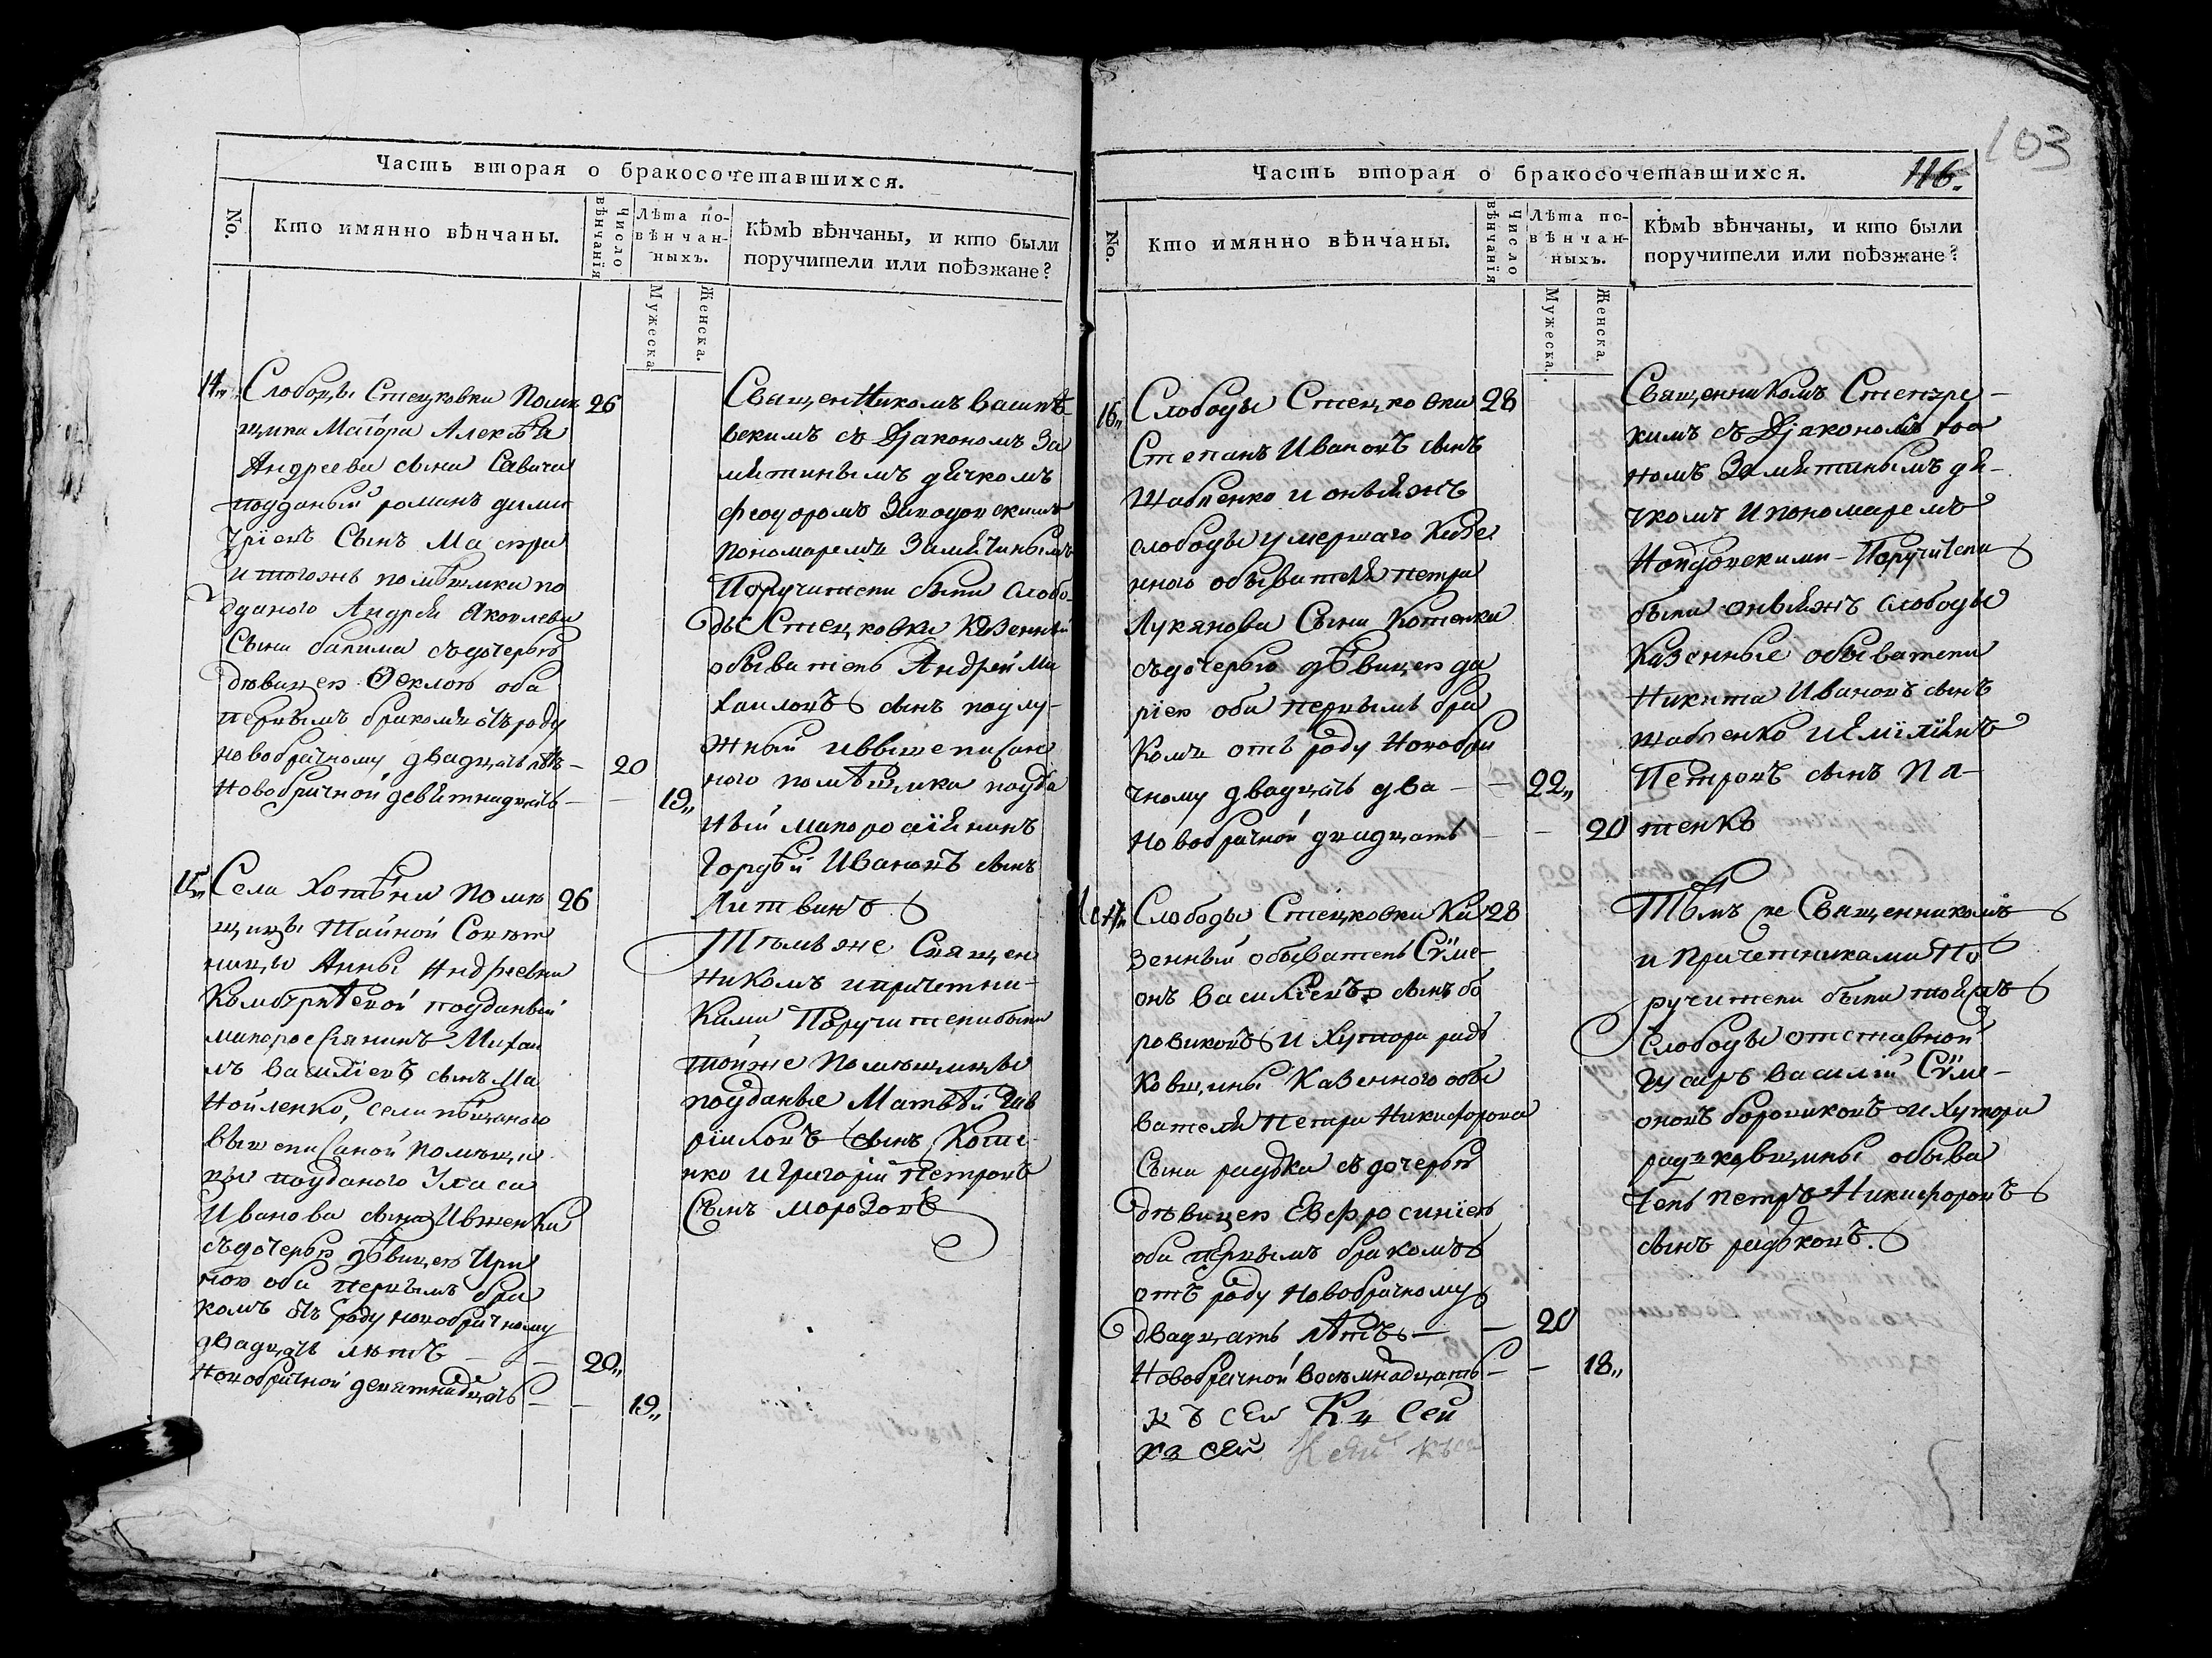 Часть вторая о бракосочетавшихся.
No.
Кто имянно вѣнчаны.
Число вѣнчанія
Лѣта повѣнчанныхъ.
Мужеска.
Женска.
Кѣмъ вѣнчаны, и кто были
поручители или поѣзжане?
14
Слободы Стецковки помѣ 26
щика Маіора Алексѣя
Андреева сына Савича
подданый романъ дими
тріевъ Сынъ
и тогожъ помѣщика по
дданого Андрея Яковлева
Сына съдочерью
дѣвицею Ѳеклою оба
первымъ бракомъ отъ роду
новобрачному двадцать лѣтъ — 20
новобрачной девятнадцать — 19
Священникомъ
съ Діакономъ За
мятинымъ дячкомъ
феодоромъ
пономаремъ
Поручители были слобо
ды Стецковки Казенный
обыватель Андрей Ми
хаиловъ сынъ
жный ивышеписан
ного помѣщика подда
ный малоросіянинъ
Гордѣй Ивановъ сынъ
Литвинъ.
15
Села Хотѣни помѣ 26
щицы Тайной Совѣт
ницы Анны Андреевны
подданый
малоросіянинъ Михаи
лъ Василіевъ сынъ Ма
нойленко, села пѣщаного
вышеписаной помѣщи
цы подданого Уласа
Иванова сына Ивженка
съдочерью дѣвицею Ири
ною оба первымъ бра
комъ отъ роду новобрачному
двадцать лѣтъ — 20
Новобрачной девятнадцать — 19
Тѣмъ же Священ
никомъ ипричетни
ками Поручители были
тойже помѣщицы
подданые Матвѣй Гав
риловъ сынъ Коте
нко и Григорій Петровъ
Сынъ морозовъ
103
116.
Часть вторая о бракосочетавшихся.
No.
Кто имянно вѣнчаны.
Число вѣнчанія
Лѣта повѣнчанныхъ.
Мужеска.
Женска.
Кѣмъ вѣнчаны, и кто были
поручители или поѣзжане?
16
Слободы Стецковки 28
Степанъ Ивановъ сынъ
Шабленко и онѣяжъ
слободы умершаго Казе
нного обывателя петра
Лукянова Сына Котенка
съдочерью дѣвицею да
ріею оба первымъ бра
комъ отъ роду новобра
чному двадцать два — 22
новобрачной двадцать — 20
Священникомъ
кимъ съ Діакономъ Іоа
номъ Замятинымъ дя
чкомъ и пономаремъ
Поручители
были онѣяжъ слободы
Казенные обыватели
Никита Ивановъ сынъ
шабленко
Петровъ сынъ Пя
тенко
17
Слободы Стецковки Ка 28
зенный обыватель Сѵме
онъ Василіевъ сынъ бо
ровиковъ и Хутора радь
ковщины Казенного обы
вателя Петра Никифорова
Сына радька съ дочерью
дѣвицею Евфросиніею
оба первымъ бракомъ
отъ роду Новобрачному
двадцать лѣтъ — 20
Новобрачной восемнадцать — 18
къ сей Къ Сей
къ сей
Тѣмъ же Священникомъ
и Причетниками По
ручители были тойжъ
Слободы отставной
Гусаръ Василій Сѵме
оновъ боровиковъ и Хутора
радьковщины обыва
тель петръ Никифоровъ
сынъ радьковъ.